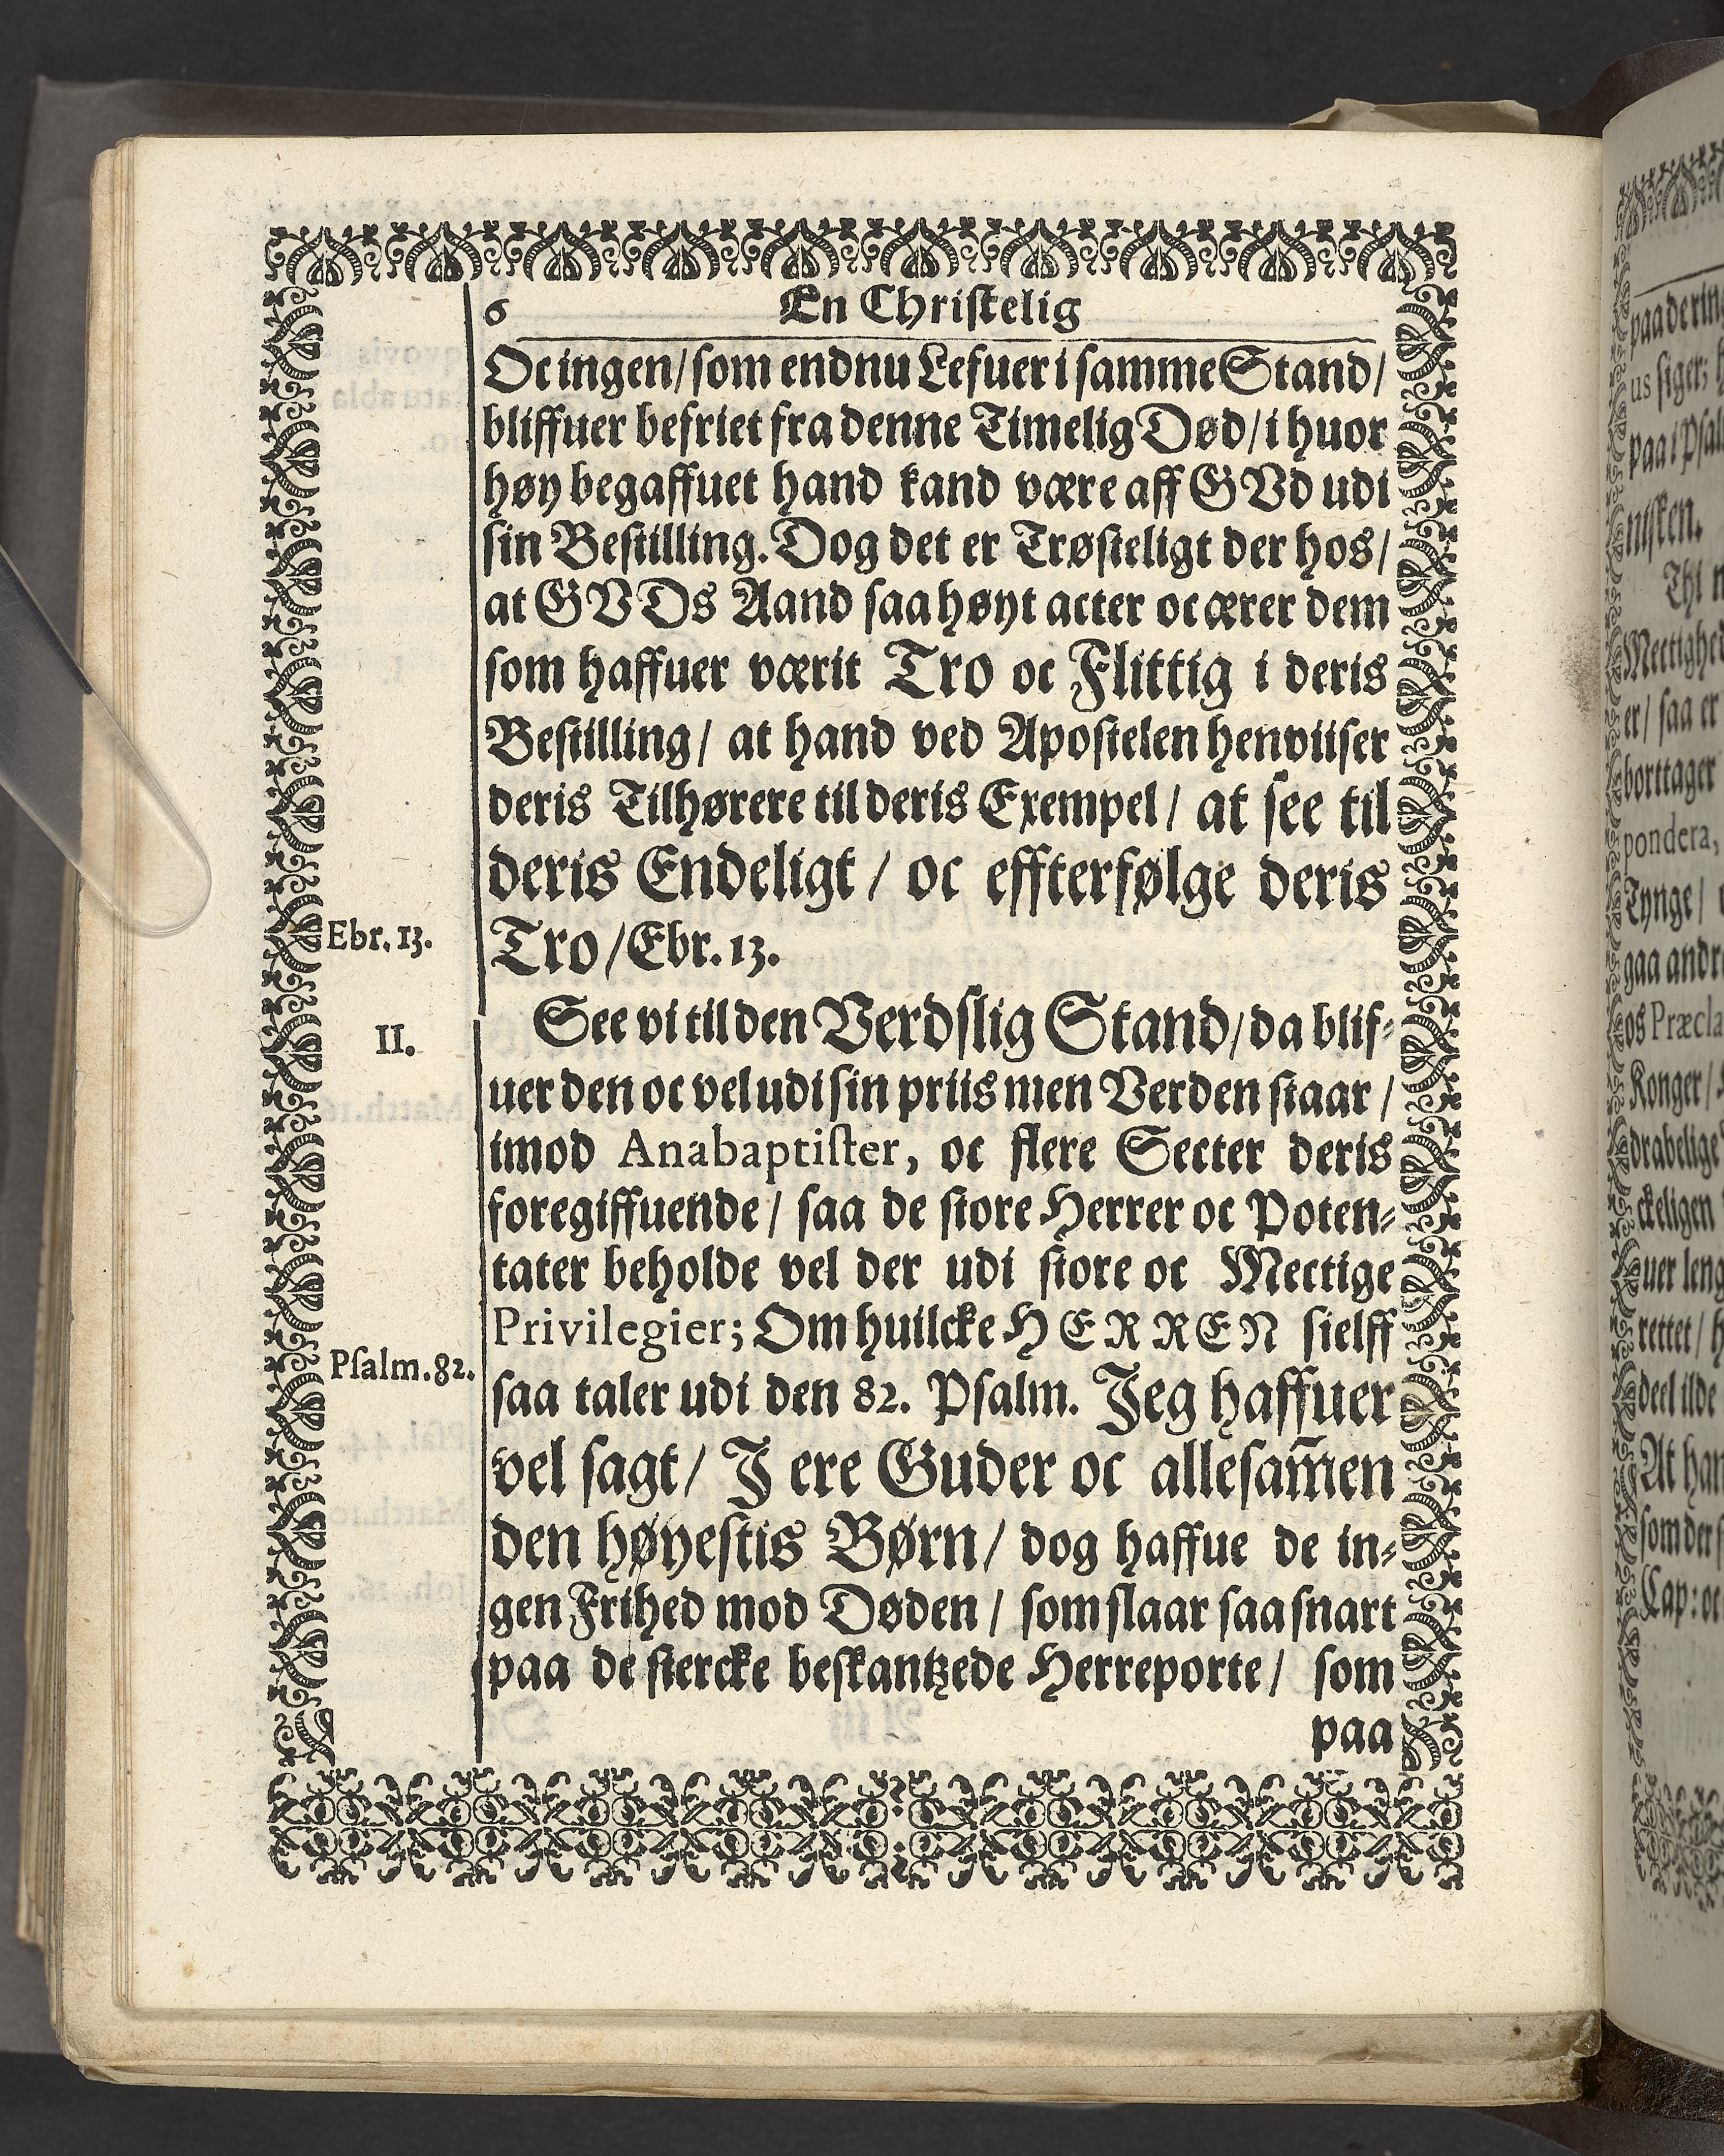 6 En Christelig
Oc ingen/ som endnu Lefuer i samme Stand/
bliffuer befriet fra denne Timelig Død/ i huor
høy begaffuet hand kand være aff GVd udi
sin Bestilling. Dog det er Trøsteligt der hos/
at GVDs Aand saa høyt acter oc ærer dem
som haffuer værit Tro oc Flittig i deris
Bestilling/ at hand ved Apostelen henviiser
deris Tilhørere til deris Exempel/ at see til
deris Endeligt/ oc effterfølge deris
Ebr. 13.
Tro/ Ebr. 13.
II.
See vi til den Verdslig Stand/ da blif-
uer den oc vel udi sin priis men Verden staar/
imod Anabaptister, oc flere Secter deris
foregiffuende/ saa de store Herrer oc Poten-
tater beholde vel der udi store oc Mectige
Privilegier; Om huilcke HERREN sielff
Psalm. 82.
saa taler udi den 82. Psalm. Jeg haffuer
vel sagt/ J ere Guder oc allesam̃en
den høyestis Børn/ dog haffue de in-
gen Frihed mod Døden/ som slaar saa snart
paa de stercke beskantzede Herreporte/ som
paa
paa de ring
us siger; h
paa i Psal
nisken.
Thi n
Mectighed
er/ saa er
borttager
pondera,
Tynge/
gaa andr
os Præcla
Konger/
drabelige
ckeligen
uer leng
rettet/ h
deel ilde
At han
som der s
Cap: oc